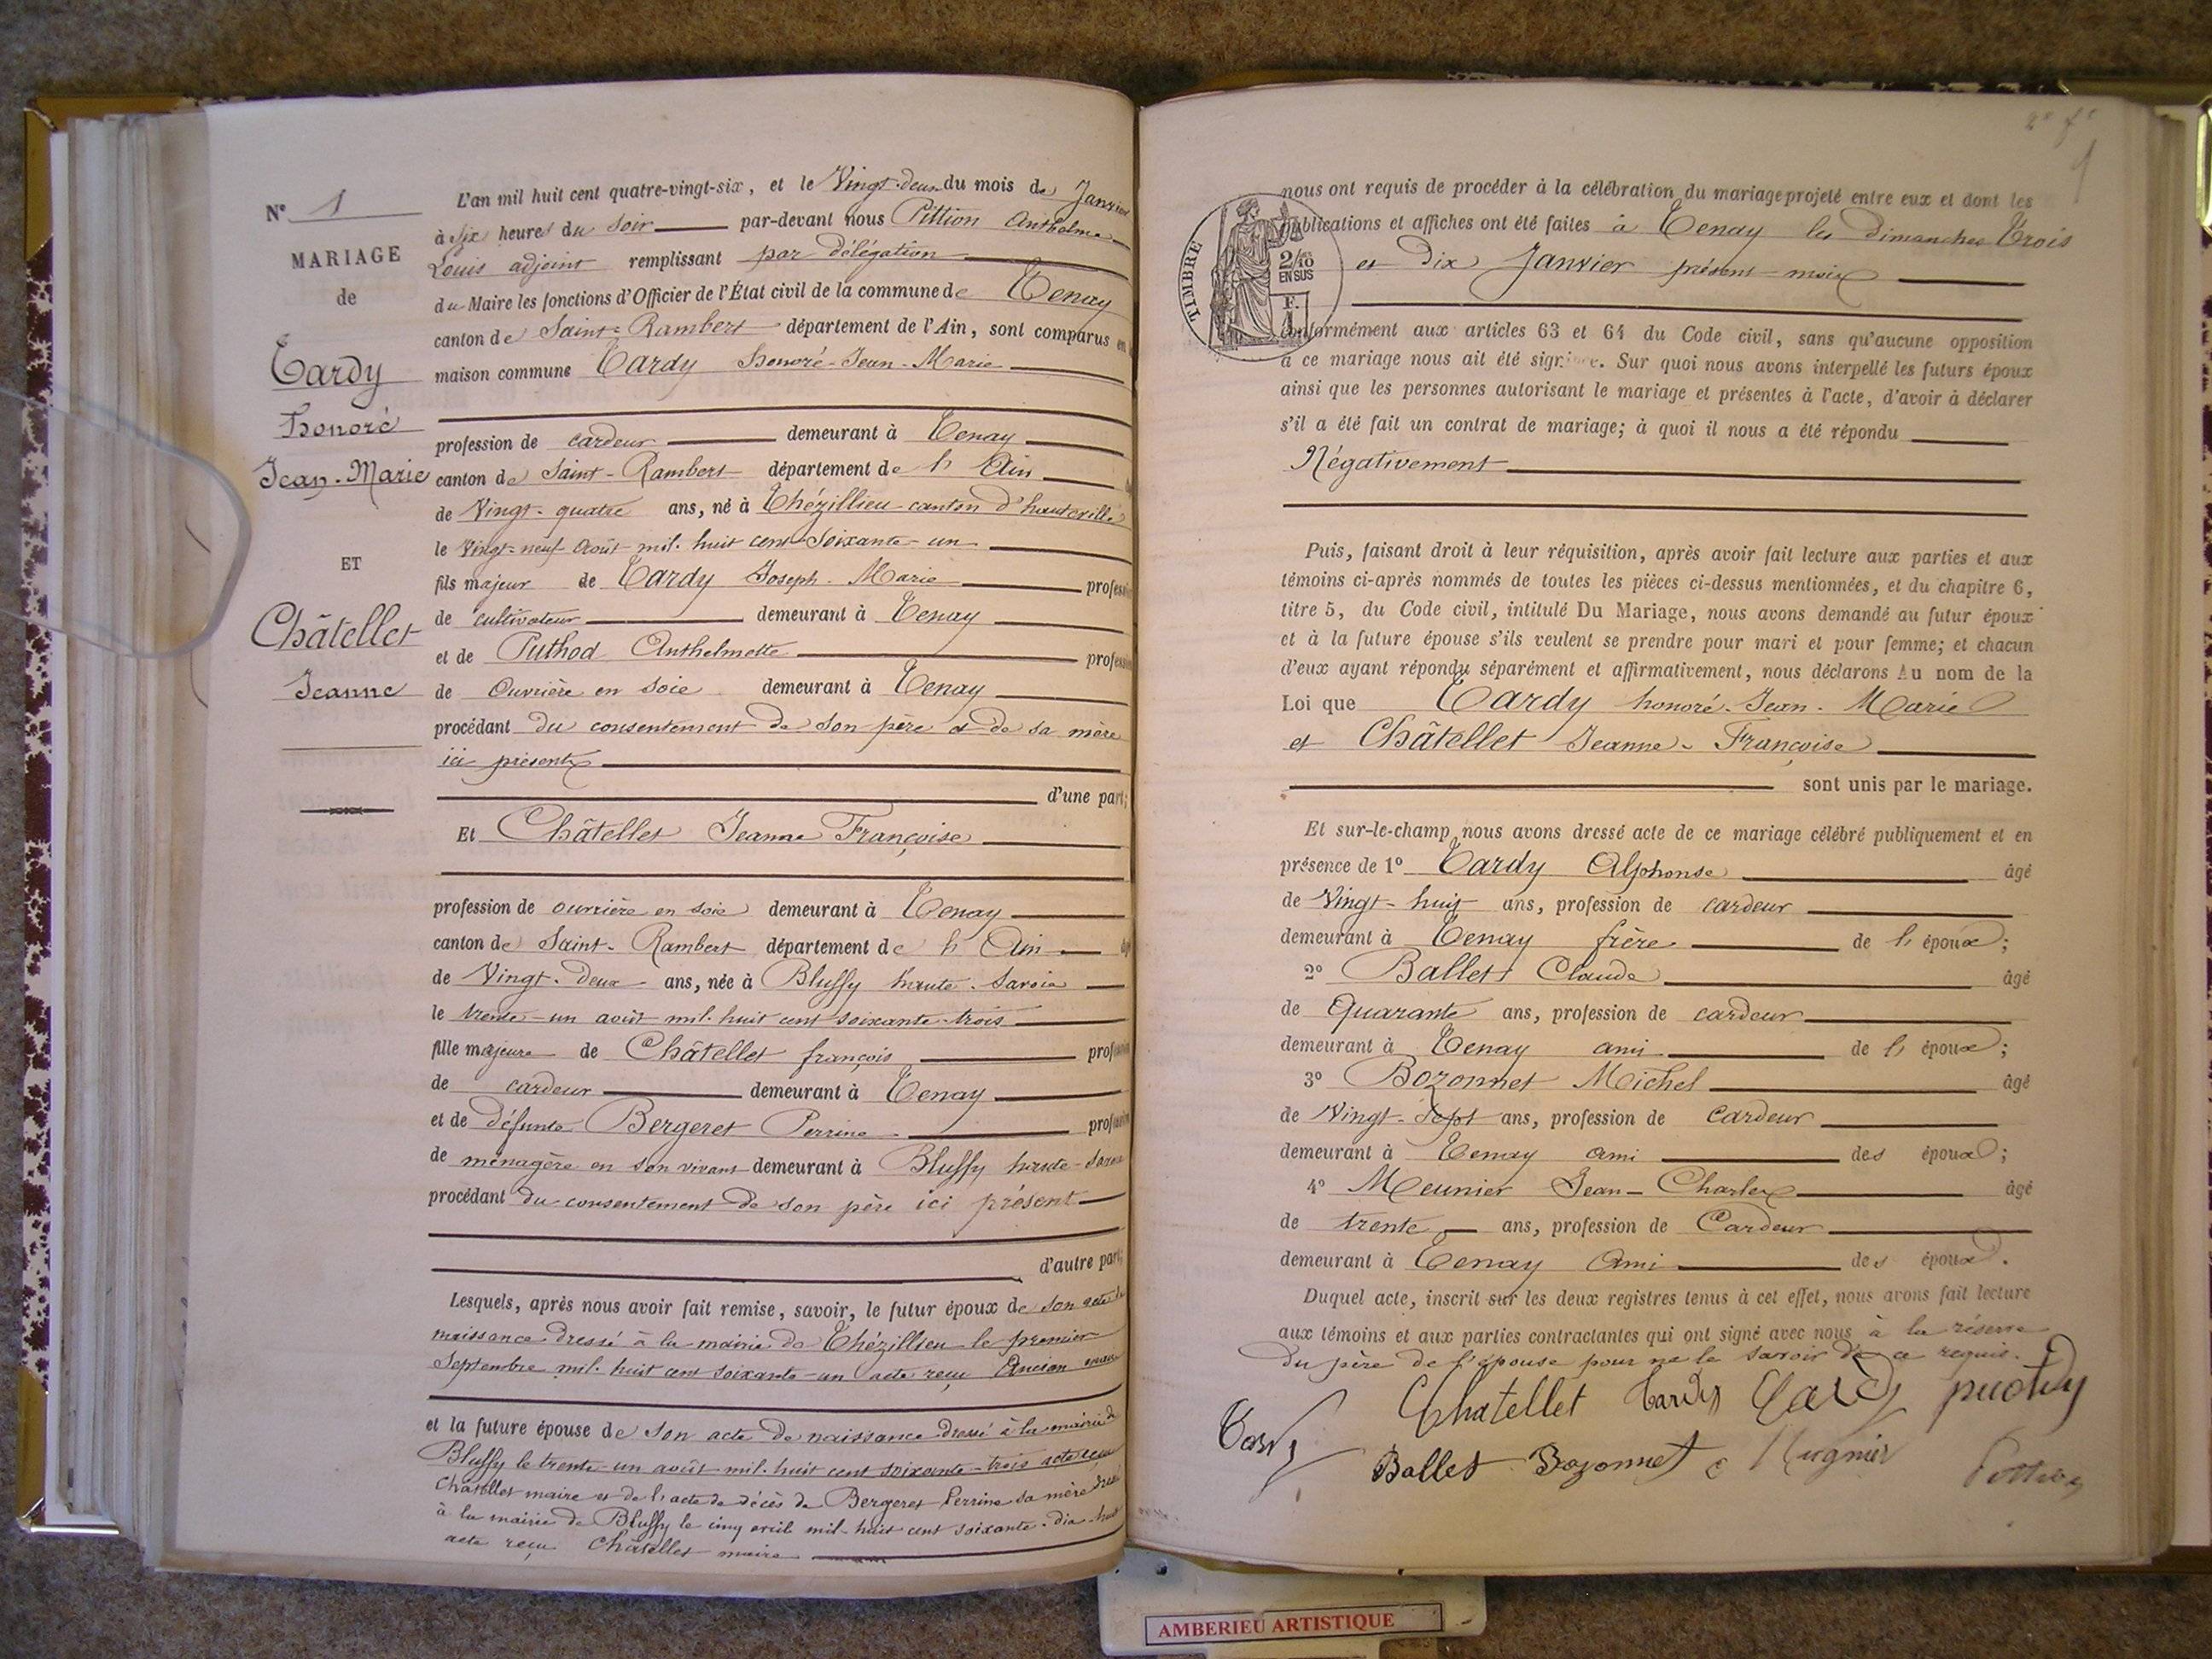 N° 1
MARIAGE
de
Tardy
honoré
Jean-Marie
ET
Châtellet
Jeanne
L'an mil huit cent quatre-vingt-six, et le Vingt-deux du mois de Janvier
à six heures du soir par-devant nous Pittion Anthelme
Louis adjoint remplissant par délégation
du Maire les fonctions d'Officier de l'État civil de la commune de Tenay
canton de Saint-Rambert département de l'Ain, sont comparus en
maison commune Tardy honoré-Jean-Marie
profession de cardeur demeurant à Tenay
canton de Saint-Rambert département de l'Ain
de Vingt-quatre ans, né à Thézillieu canton d'hauteville
le vingt-neuf août mil huit cent soixante-un
fils majeur de Tardy Joseph-Marie profession
de cultivateur demeurant à Tenay
et de Puthod Anthelmette profession
de Ouvrière en soie demeurant à Tenay
procédant du consentement de son père et de sa mère
ici présents
d'une part;
Et Châtellet Jeanne Françoise
profession de ouvrière en soie demeurant à Tenay
canton de Saint-Rambert département de l'Ain
de Vingt-deux ans, née à Bluffy haute-Savoie
le trente-un août mil huit cent soixante-trois
fille majeure de Châtellet françois profession
de cardeur demeurant à Tenay
et de défunte Bergeret Perrine profession
de ménagère en son vivant demeurant à Bluffy haute-Savoie
procédant du consentement de son père ici présent
d'autre part;
Lesquels, après nous avoir fait remise, savoir, le futur époux de son acte de
naissance dressé à la mairie de Thézillieu le premier
Septembre mil huit cent soixante-un acte reçu Ancian maire
et la future épouse de son acte de naissance dressé à la mairie de
Bluffy le trente-un août mil huit cent soixante-trois acte reçu
Châtellet maire et de l'acte de décès de Bergeret Perrine sa mère dressé
à la mairie de Bluffy le cinq avril mil-huit cent soixante-dix-huit
acte reçu Châtellet maire
TIMBRE
2/10
EN SUS
F.
1
nous ont requis de procéder à la célébration du mariage projeté entre eux et dont les
publications et affiches ont été faites à Tenay les dimanches Trois
et Dix Janvier présent mois
conformément aux articles 63 et 64 du Code civil, sans qu'aucune opposition
à ce mariage nous ait été signifiée. Sur quoi nous avons interpellé les futurs époux
ainsi que les personnes autorisant le mariage et présentes à l'acte, d'avoir à déclarer
s'il a été fait un contrat de mariage; à quoi il nous a été répondu
Négativement
Puis, faisant droit à leur réquisition, après avoir fait lecture aux parties et aux
témoins ci-après nommés de toutes les pièces ci-dessus mentionnées, et du chapitre 6,
titre 5, du Code civil, intitulé Du Mariage, nous avons demandé au futur époux
et à la future épouse s'ils veulent se prendre pour mari et pour femme; et chacun
d'eux ayant répondu séparément et affirmativement, nous déclarons Au nom de la
Loi que Tardy honoré-Jean-Marie
et Châtellet Jeanne-Françoise
sont unis par le mariage.
Et sur-le-champ nous avons dressé acte de ce mariage célébré publiquement et en
présence de 1° Tardy Alphonse âgé
de Vingt-huit ans, profession de cardeur
demeurant à Tenay frère de l'époux;
2° Ballet Claude âgé
de Quarante ans, profession de cardeur
demeurant à Tenay ami de l'époux;
3° Bozonnet Michel âgé
de Vingt-Sept ans, profession de cardeur
demeurant à Tenay ami des époux;
4° Meunier Jean-Charles âgé
de trente ans, profession de Cardeur
demeurant à Tenay Ami des époux.
Duquel acte, inscrit sur les deux registres tenus à cet effet, nous avons fait lecture
aux témoins et aux parties contractantes qui ont signé avec nous à la réserve
du père de l'épouse pour ne le savoir de ce requis.
Chatellet Tardy Tardy
Tardy Ballet Bozonnet Pittion
AMBERIEU ARTISTIQUE